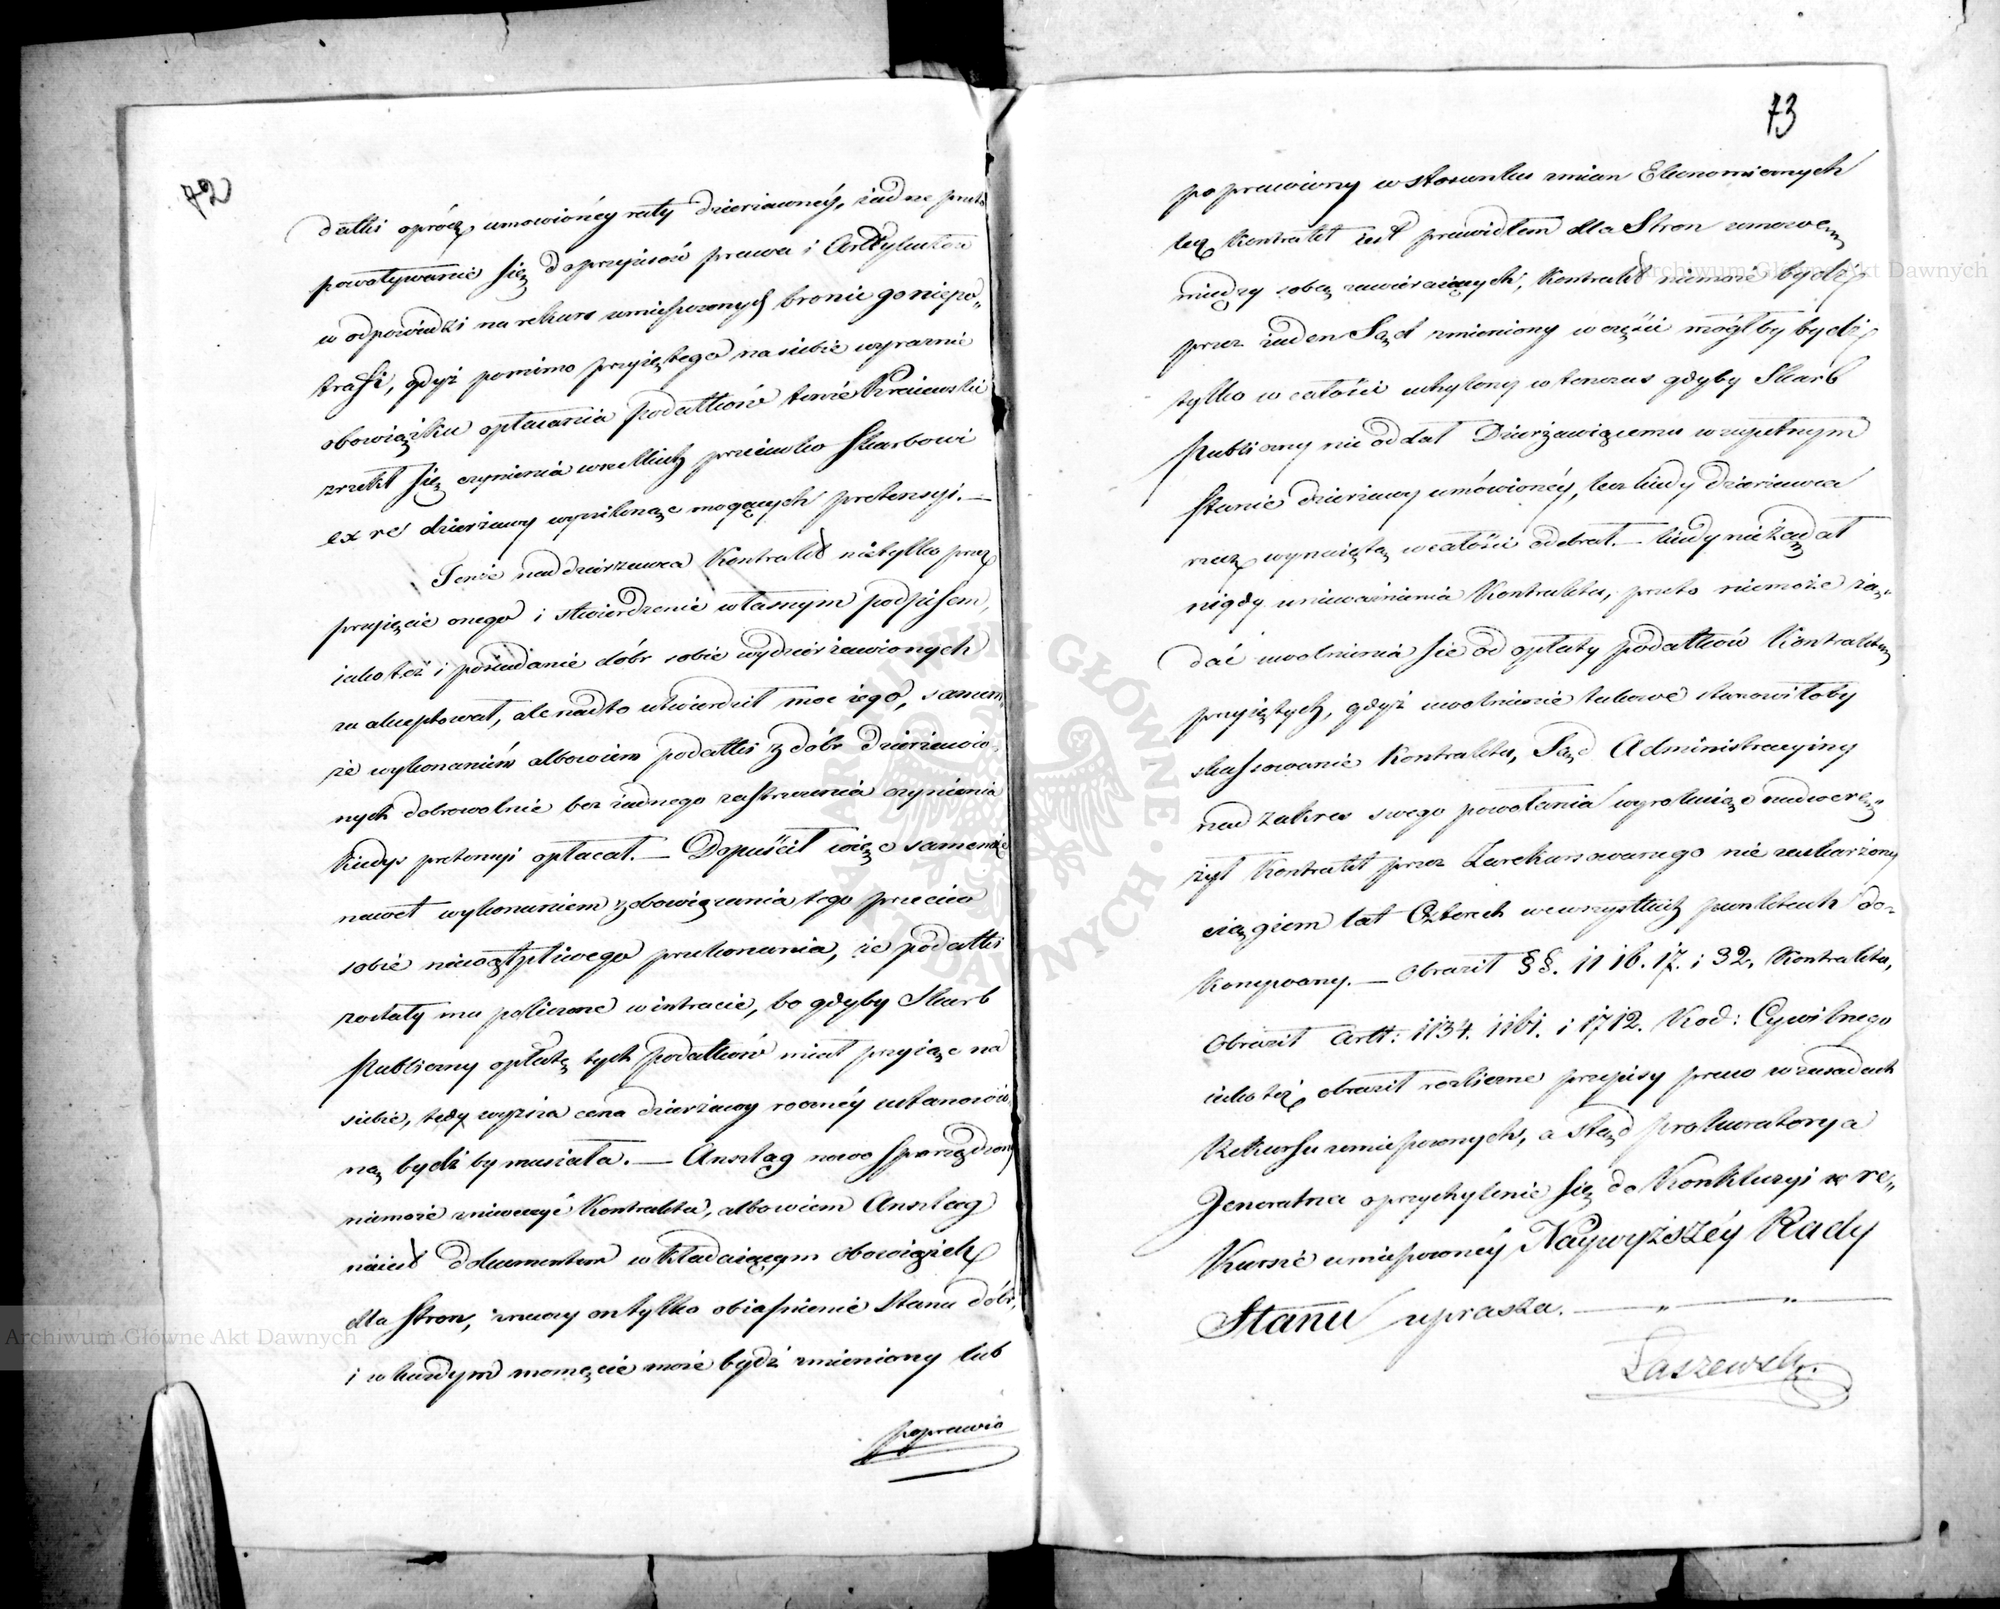 72
datki oprócz umowionéy raty dzierżawnéy, żadne przeto
powoływanie się do przepisów prawa i Arttykułów
w odpowiedzi na rekurs umieszczonych bronić go niepo-
trafi, gdyż pomimo przyiętego na siebie wyraznie
obowiązku opłacania podatków tenże Kraiewski
zrzekł się czynienia wszelkich przeciwko Skarbowi
ex re dzierżawy wyniknąć mogących pretensyi. —
Tenże naddzierżawca Kontrakt nietylko przez
przyięcie onego i stwierdzenie własnym podpisem,
iako też i posiadanie dóbr sobie wydzierżawionych
zaakceptował, ale nadto utwierdził moc iego, samem
że wykonaniem albowiem podatki z dóbr dzierżawio-
nych dobrowolnie bez żadnego zastrzeżenia czynienia
kiedyś pretensyi opłacał. — Dopuścił więc samemże
nawet wykonaniem zobowiązania tego przeciw
sobie niewątpliwego przekonania, że podatki
zostały mu policzone w intracie, bo gdyby Skarb
Publiczny opłatę tych podatków miał przyiąć na
siebie, tedy wyższa cena dzierżawy roczney ustanowio-
ną bydź by musiała. — Anszlag nowo sporządzony
niemoże zniweczyć Kontraktu, albowiem Anszlag
nieiest dokumentem wkładaiącym obowiązek
dla stron, znaczy on tylko obiaśnienie stanu dóbr,
i w każdym momęcie może bydź zmieniony lub
poprawio
73
poprawiony w stosunku zmian Ekonomicznych
lecz Kontrakt iest prawidłem dla Stron umowę
między sobą zawieraiących, Kontrakt niemoże bydź
przez żaden Sąd zmieniony w części mógłby bydź
tylko w całości uchylony wtenczas gdyby Skarb
Publiczny nie oddał Dzierżawiącemu w zupełnym
stanie dzierżawy umówionéy, lecz kiedy dzierżawca
rzecz wynaiętą w całości odebrał. — kiedy nieżądał
nigdy unieważnienia Kontraktu, przeto niemoże żą-
dać uwolnienia sie od opłaty podatków Kontraktem
przyiętych, gdyż uwolnienie takowe stanowiłoby
skassowanie Kontraktu, Sąd Administracyiny
nad zakres swego powołania wyrokuiąc nadwerę-
żył Kontrakt przez Zarekursowanego nie zaskarżony
ciągiem lat Czterech we wszystkich punktach do-
konywany. — Obraził §§. 11 16. 17. i 32. Kontraktu,
Obraził Artt: 1134. 1161. i 1712. Kod: Cywilnego
iako też obraził rozliczne przepisy praw w zasadach
Rekursu umieszczonych, a stąd prokuratorya
Jeneralna o przychylenie się do Konkluzyi w re-
kursie umieszczonéy Naywyższéy Rady
Stanu uprasza. — „ — „ —
Łaszewski.
Archiwum Główne Akt Dawnych
Archiwum Główne Akt Dawnych
ARCHIWUM GŁÓWNE AKT DAWNYCH